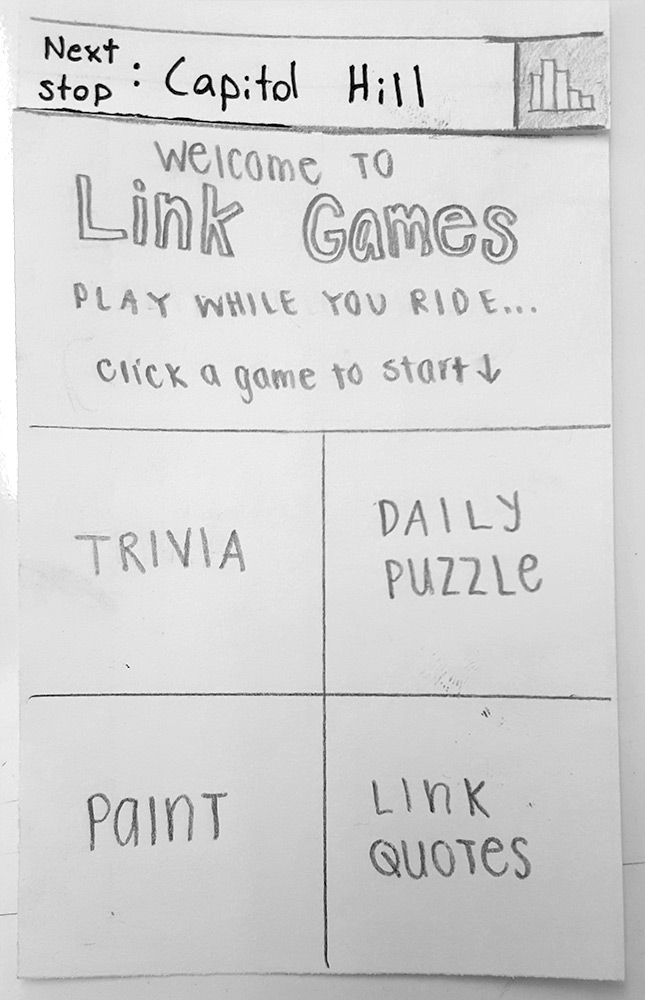 Next stop: Capitol Hill
Welcome TO
Link Games
PLAY WHILE YOU RIDE...
click a game to start↓
TRIVIA
DAILY
PUZZLE
PAINT
LINK
QUOTES